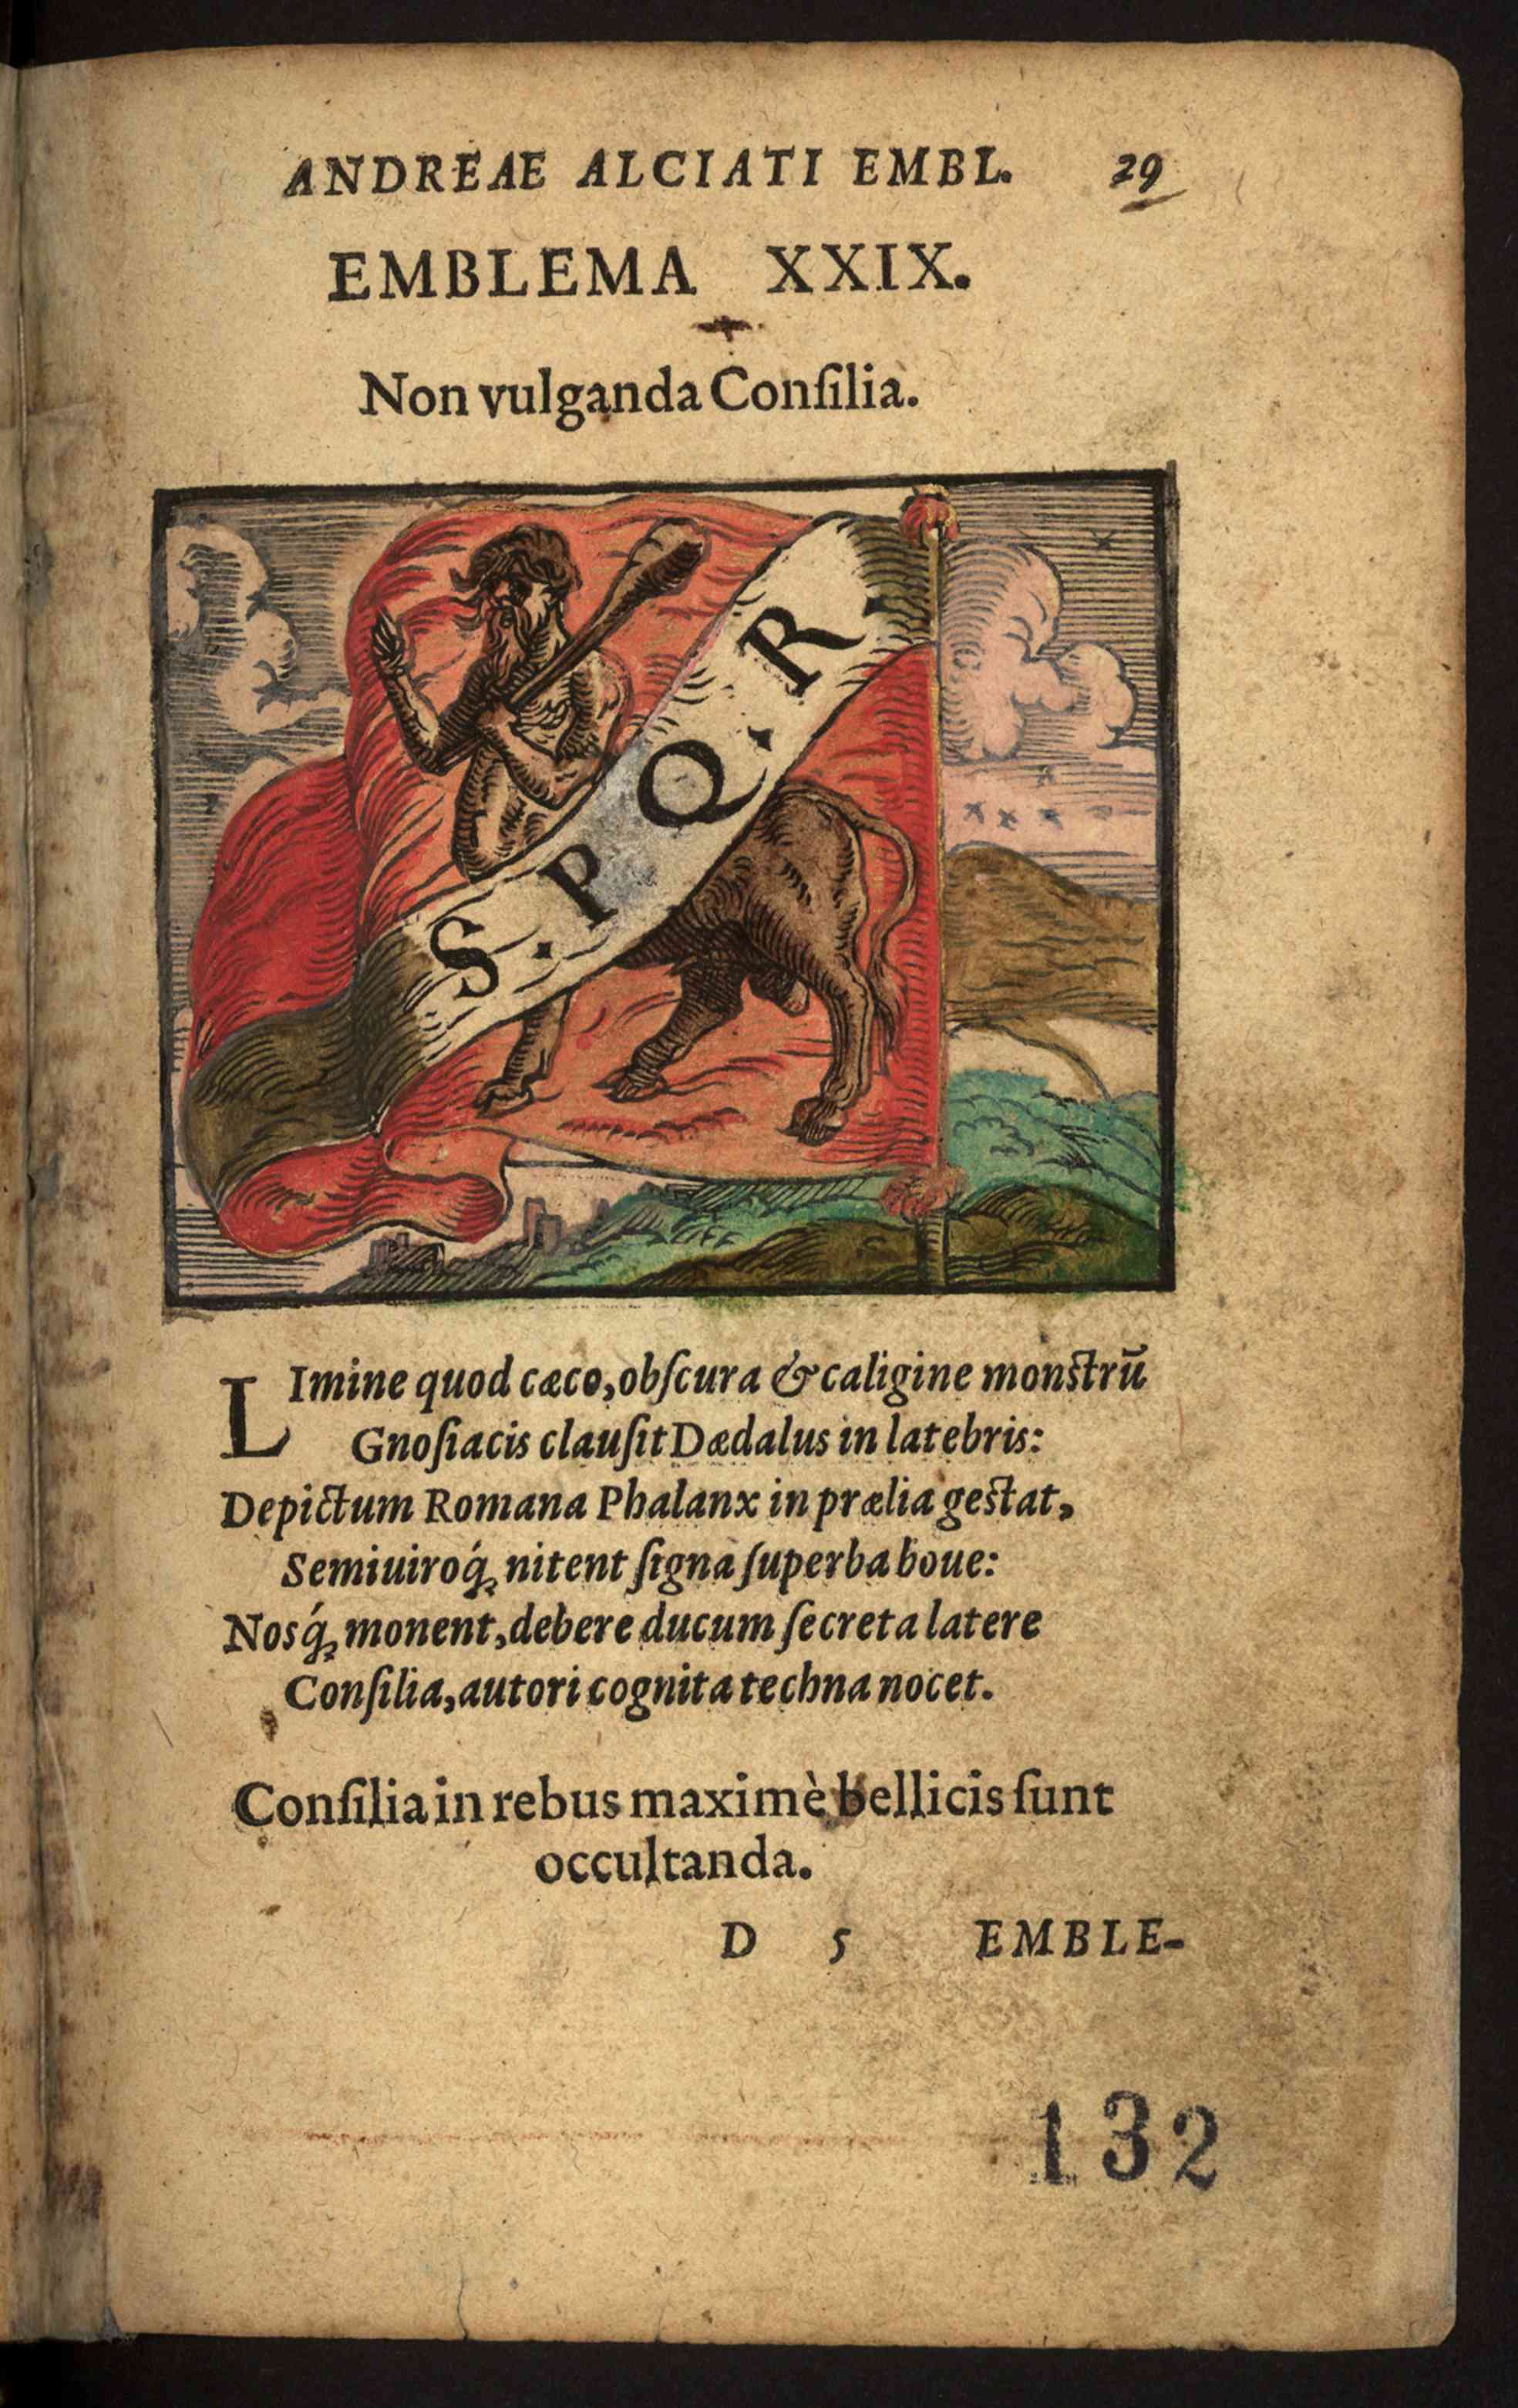 ANDREAE ALCIATI EMBL. 29
EMBLEMA XXIX.
Non vulganda Conſilia.
S. P Q. R.
LImine quod cæco, obſcura & caligine monstrū
Gnoſiacis clauſit Dædalus in latebris:
Depictum Romana Phalanx in prælia gestat,
Semiuiroq́; nitent ſigna ſuperba boue:
Nosq́; monent, debere ducum ſecreta latere
Conſilia, autori cognita techna nocet.
Conſilia in rebus maximè bellicis ſunt
occultanda.
D 5 EMBLE-
132